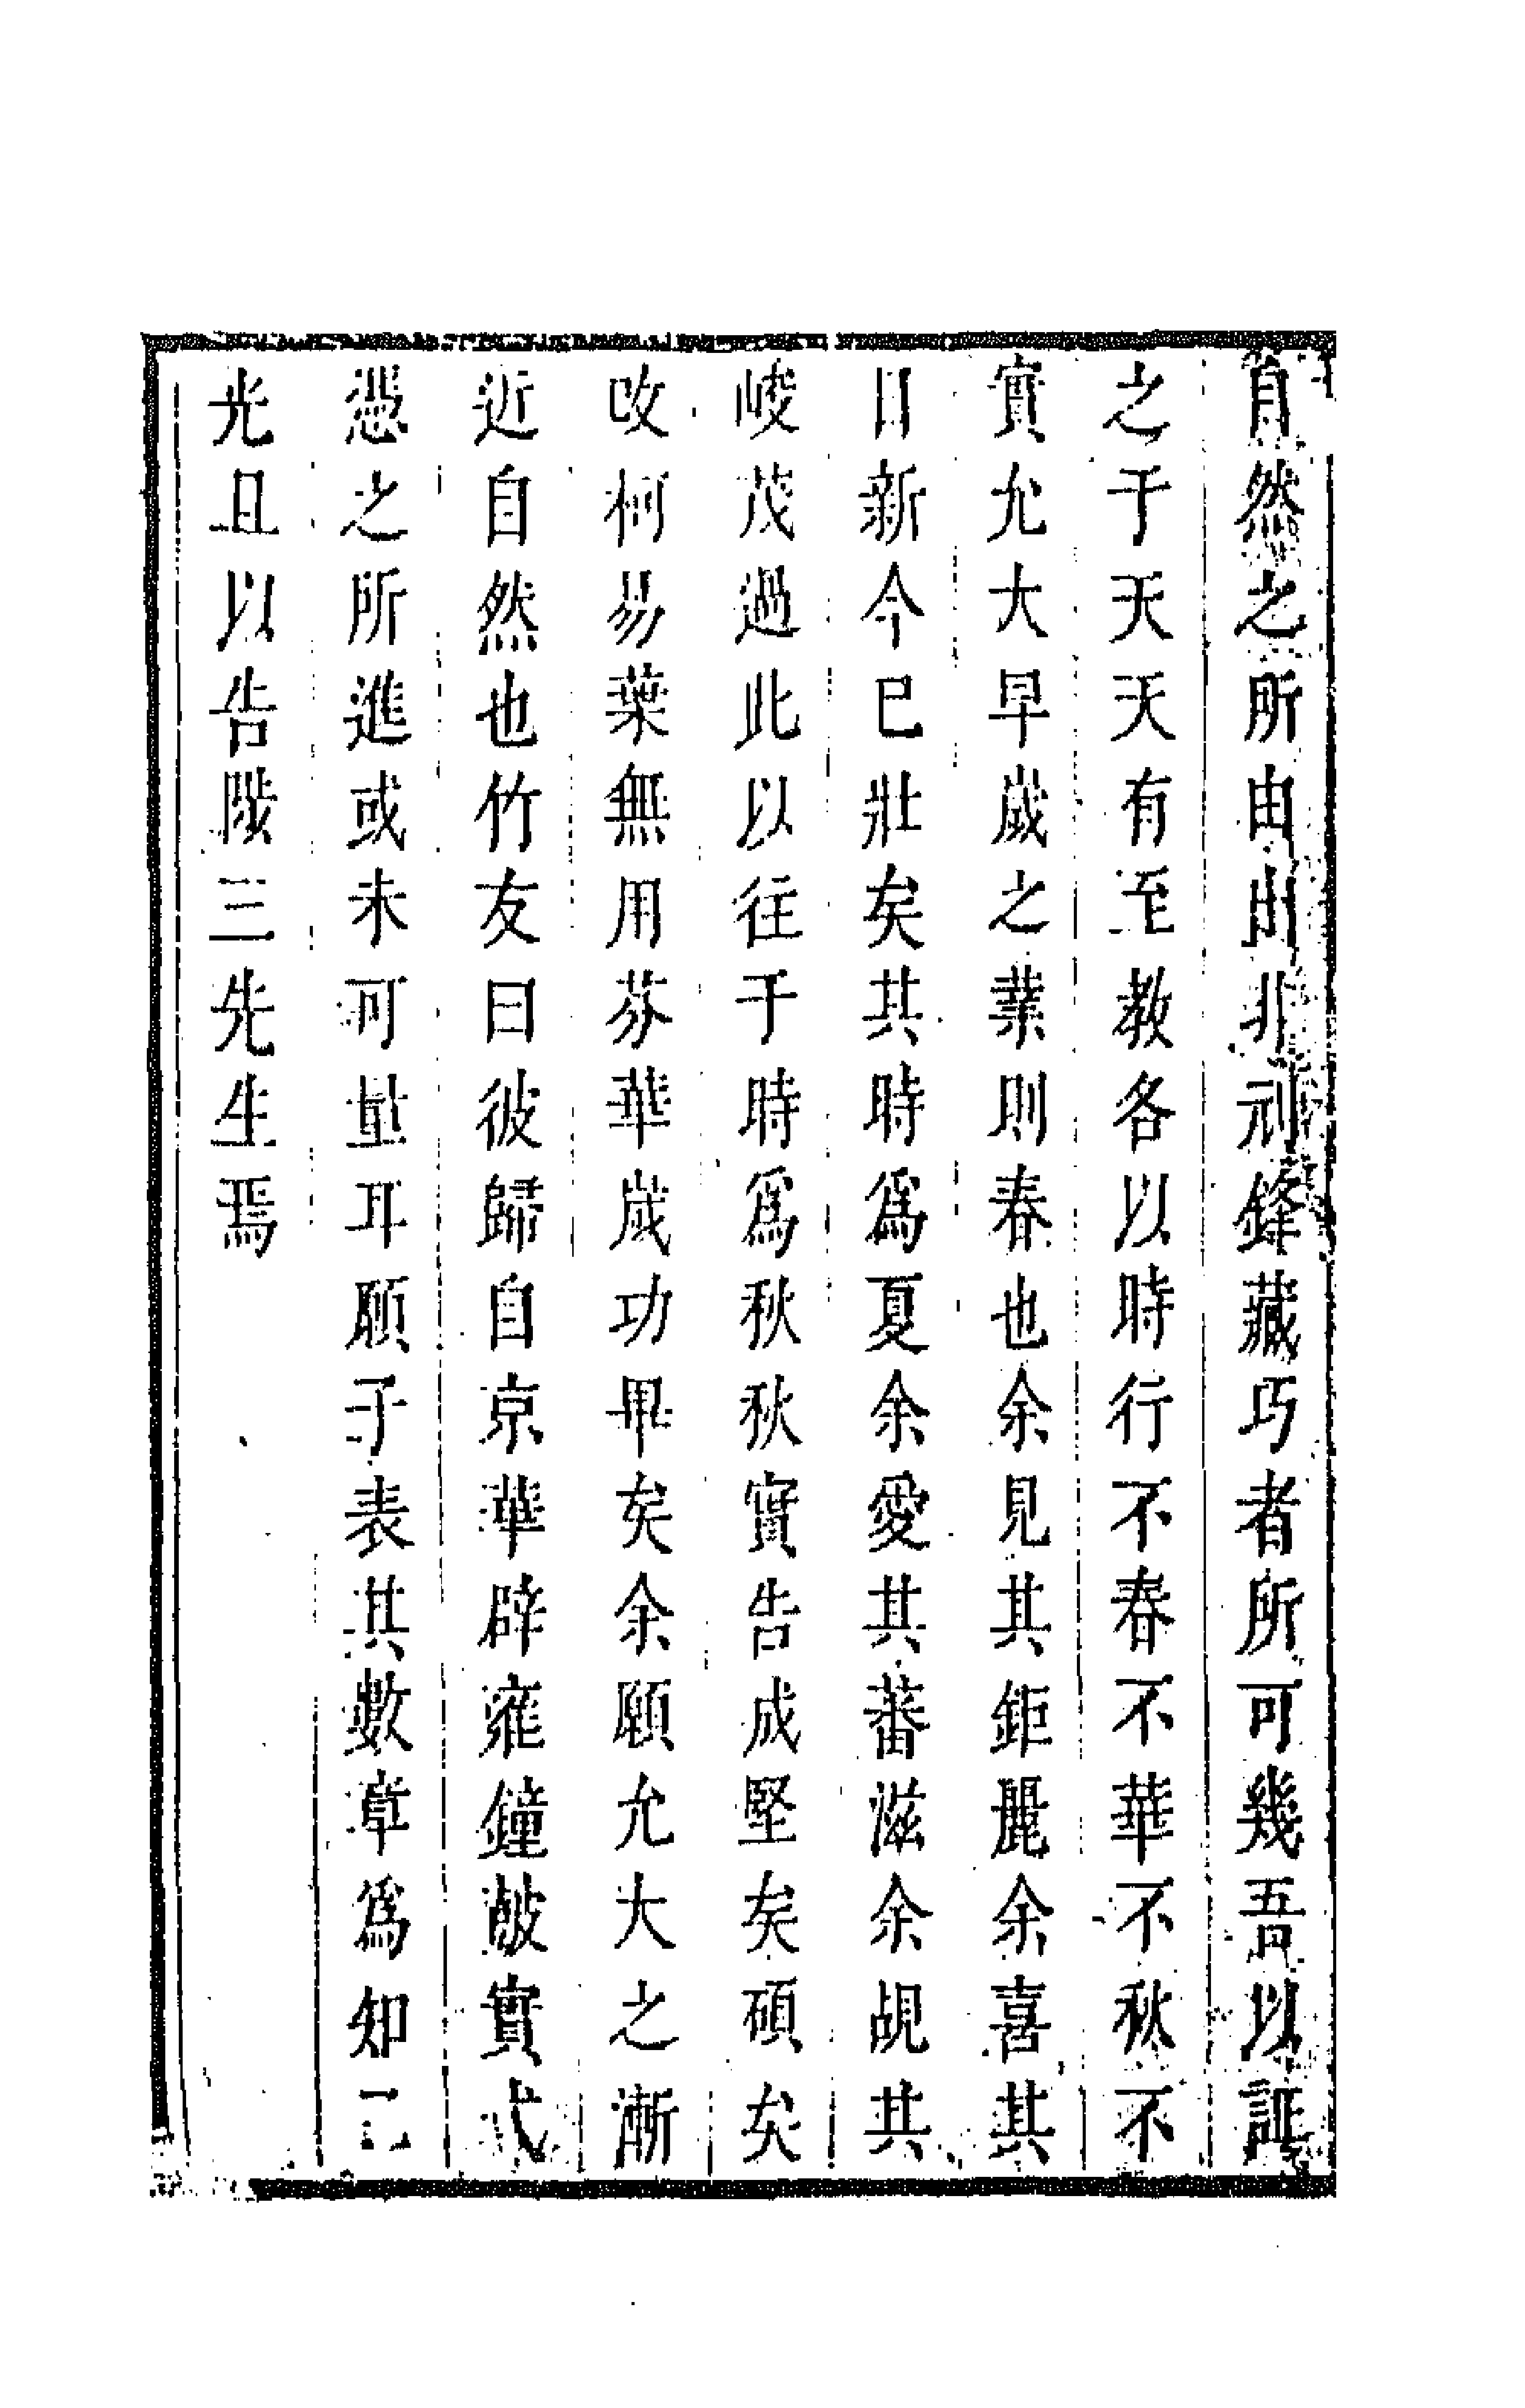 自然之所由由非利鋒藏巧者所可幾吾以証
之于天天有至教各以時行不春不華不秋不
實允大早歲之業則春也余見其鉅麗余喜其
日新今已壯矣其時爲夏余愛其蕃滋余覘其
峻茂過此以往于時爲秋秋實告成堅矣碩矣
攺柯易葉無用芬華歲功畢矣余願允大之漸
近自然也竹友曰彼歸自京華辟雍鐘皷實式
憑之所進或未可量耳願子表其數章爲知己
光且以告陞三先生焉